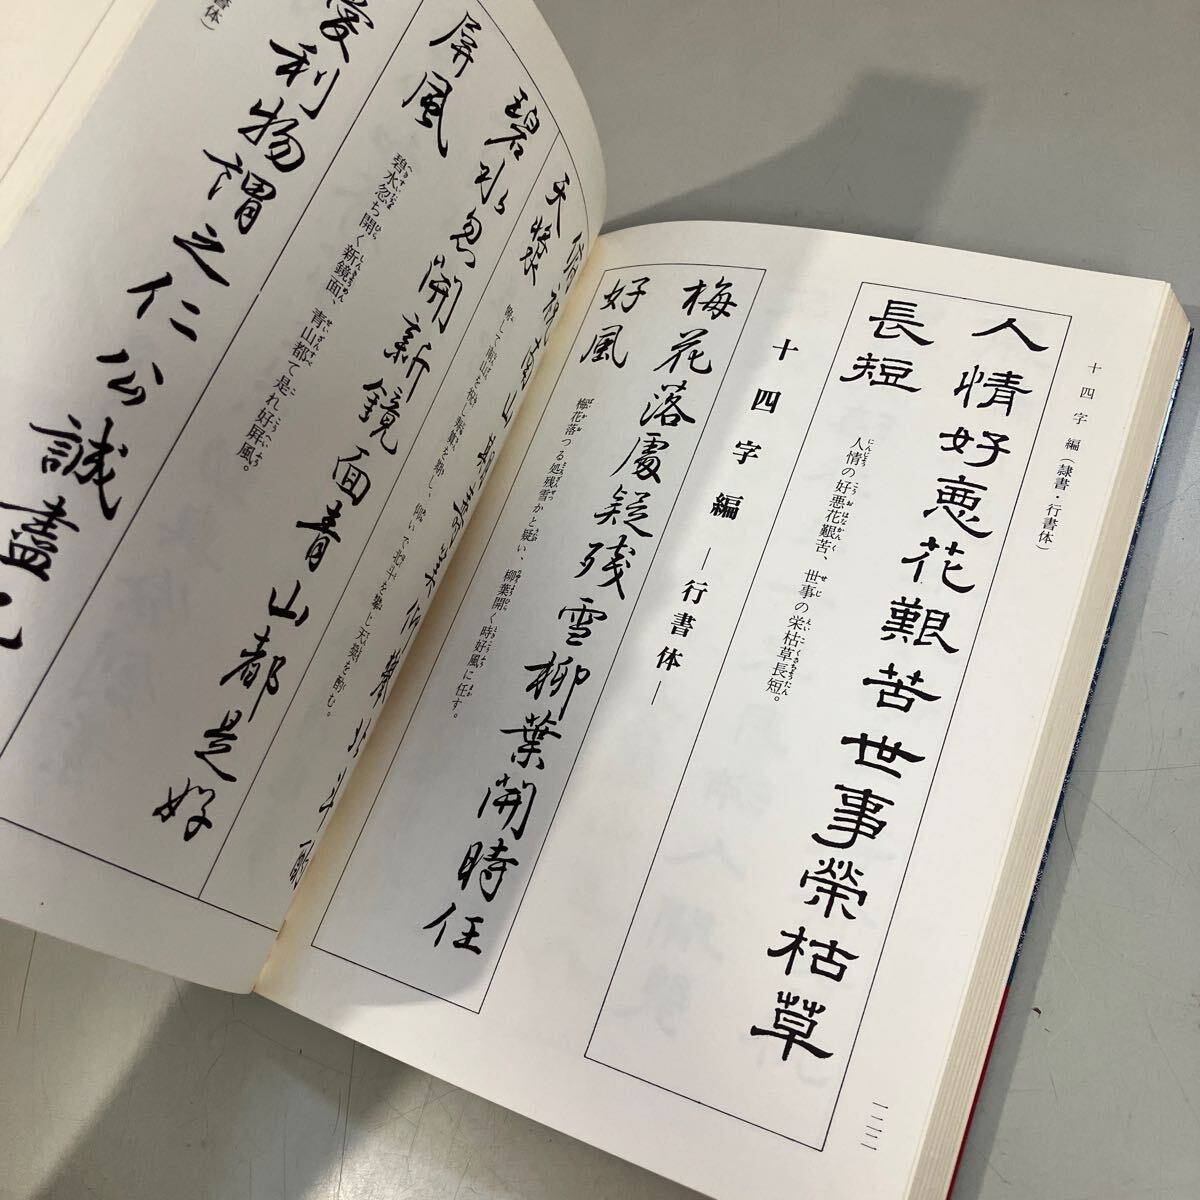 十四字編(隷書・行書体)
人情好悪花艱苦世事榮枯草
長短
人情の好悪花艱苦、世事の栄枯草長短。
十四字編 ―行書体―
梅花落處疑残雪柳葉開時任
好風
梅花落つる処残雪かと疑い、柳葉開く時好風に任す。
一二二
碧水忽開新鏡面青山都是好
屏風
碧水忽ち開く新鏡面、青山都て是れ好屏風。
利物謂之仁公誠盡己
書体)